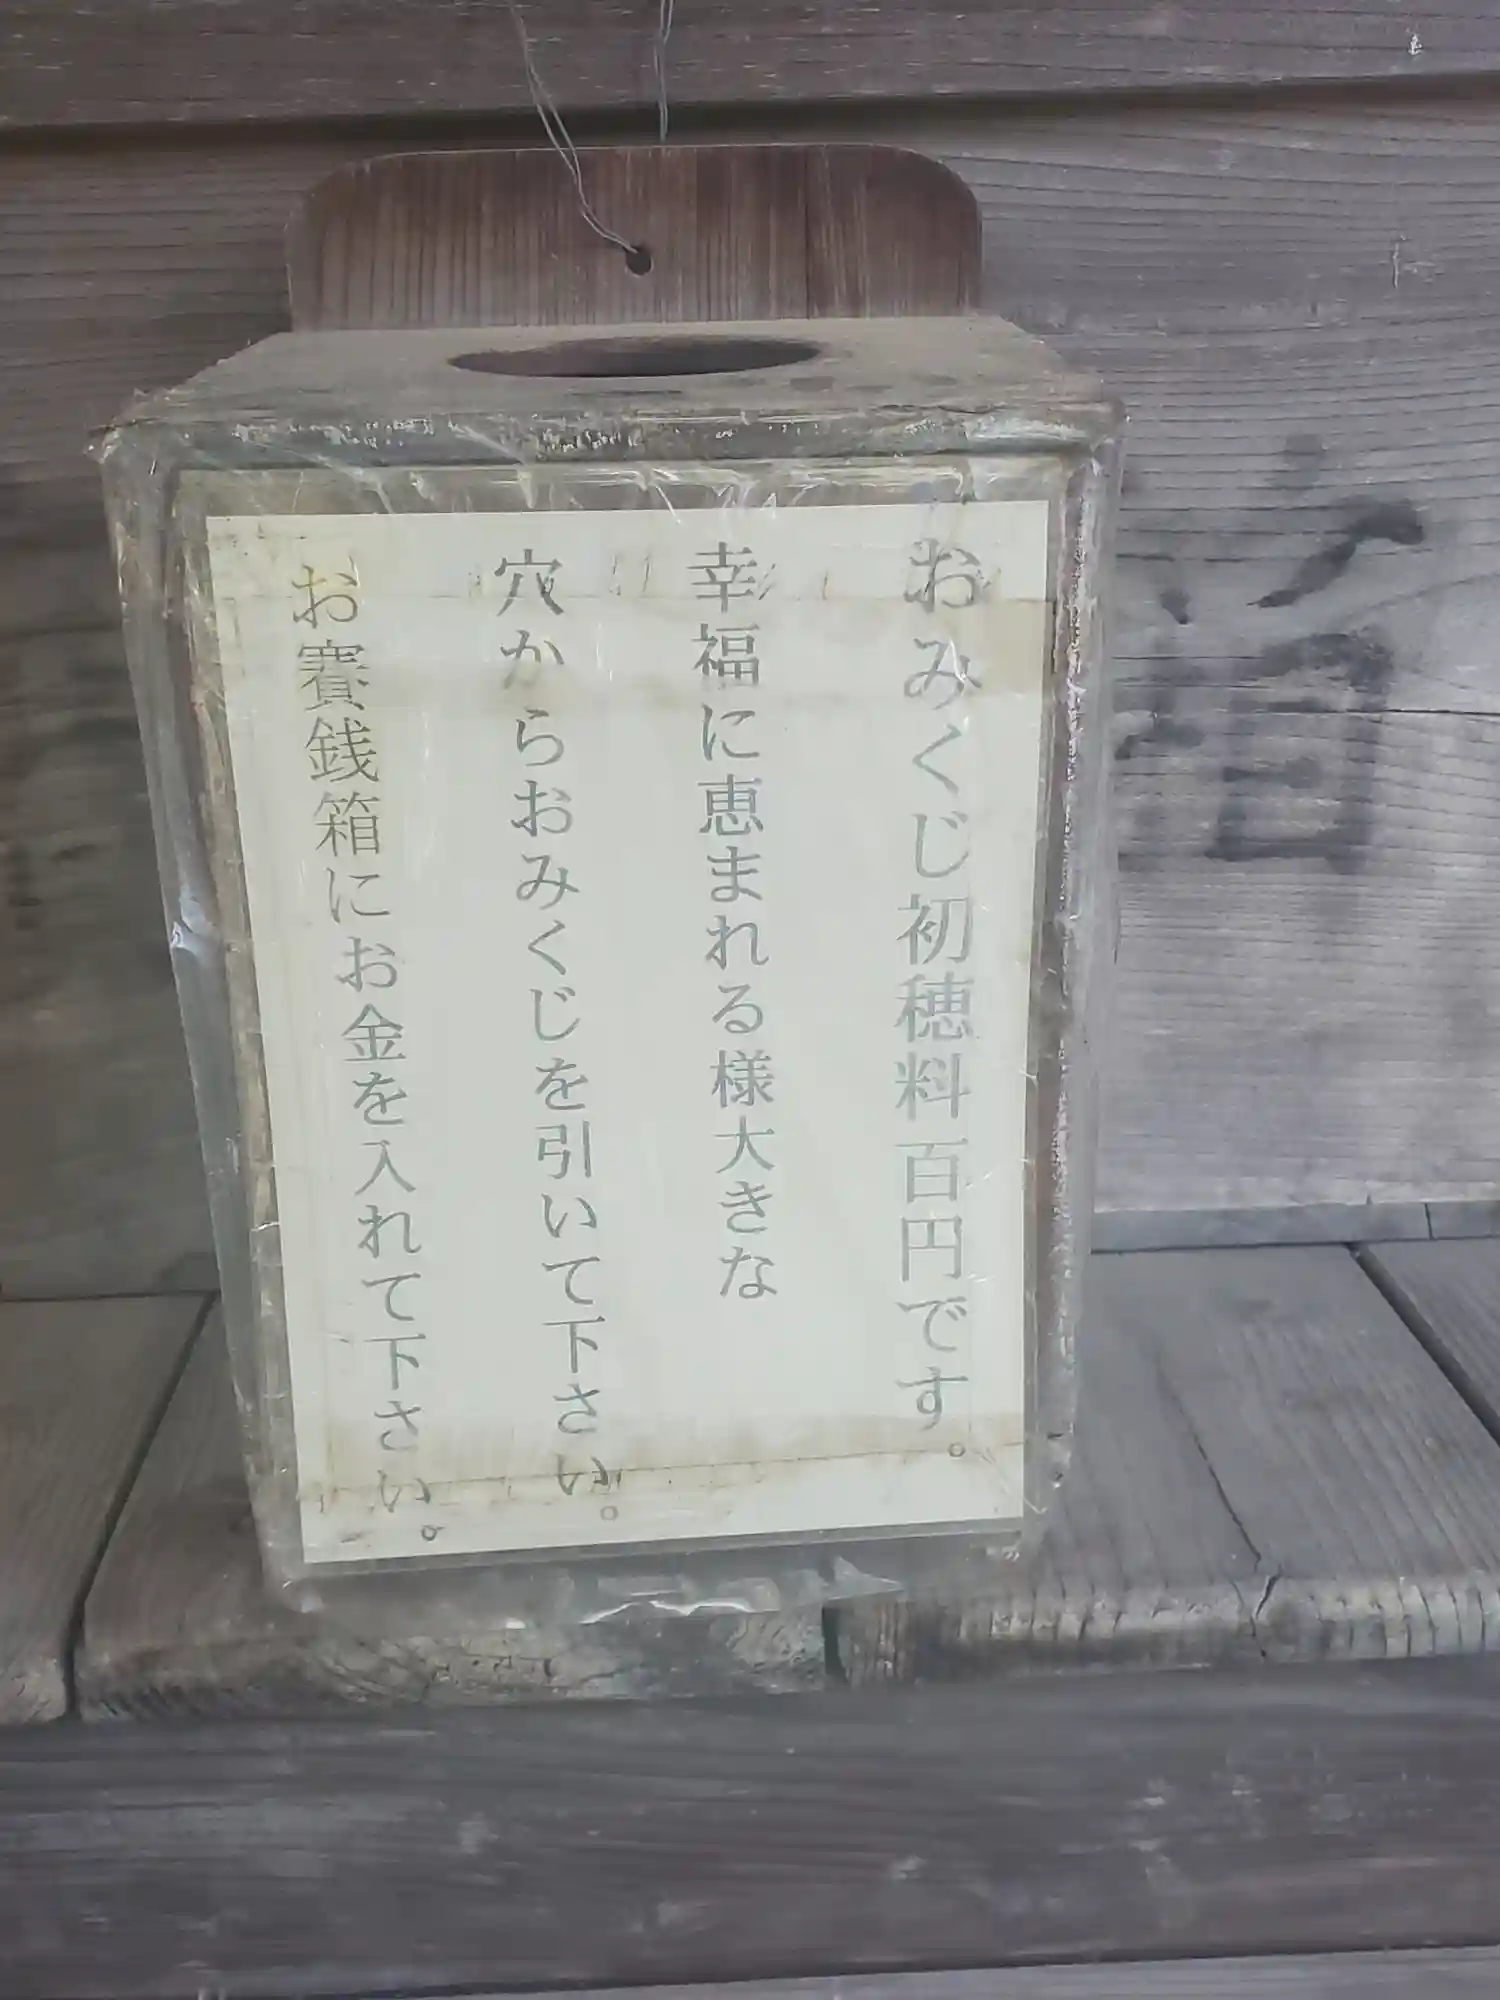 おみくじ初穂料百円です。
幸福に恵まれる様大きな
穴からおみくじを引いて下さい。
お賽銭箱にお金を入れて下さい。